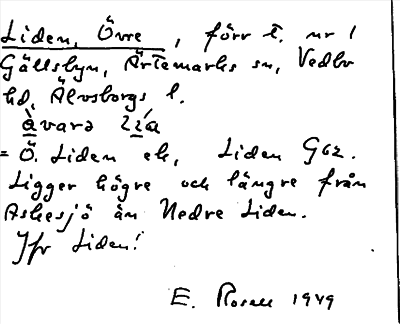 Liden, Övre, förr t. nr 1
Gällsbyn, Ärtemarks sn, Vedbo
hd, Älvsborgs l.
àvarə líɑ
= Ö. Liden ek, Liden G62.
Ligger högre och längre från
Askesjö än Nedre Liden.
Jfr Liden!
E. Rosell 1949